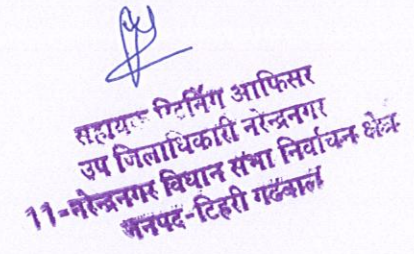 सहायक रिटर्निंग आफिसर
उप जिलाधिकारी नरेन्द्रनगर
11-नरेन्द्रनगर विधान सभा निर्वाचन क्षेत्र
जनपद-टिहरी गढवाल